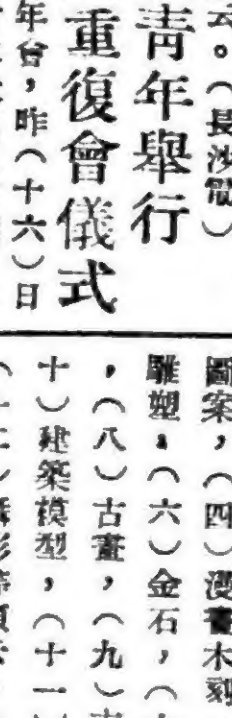 云。（長沙電）
青年舉行
重復會儀式
年台，昨（十六）日
圖案，（四）漫畫木刻
雕塑，（六）金石，（
，（八）古畫，（九）
十）建築模型，（十一